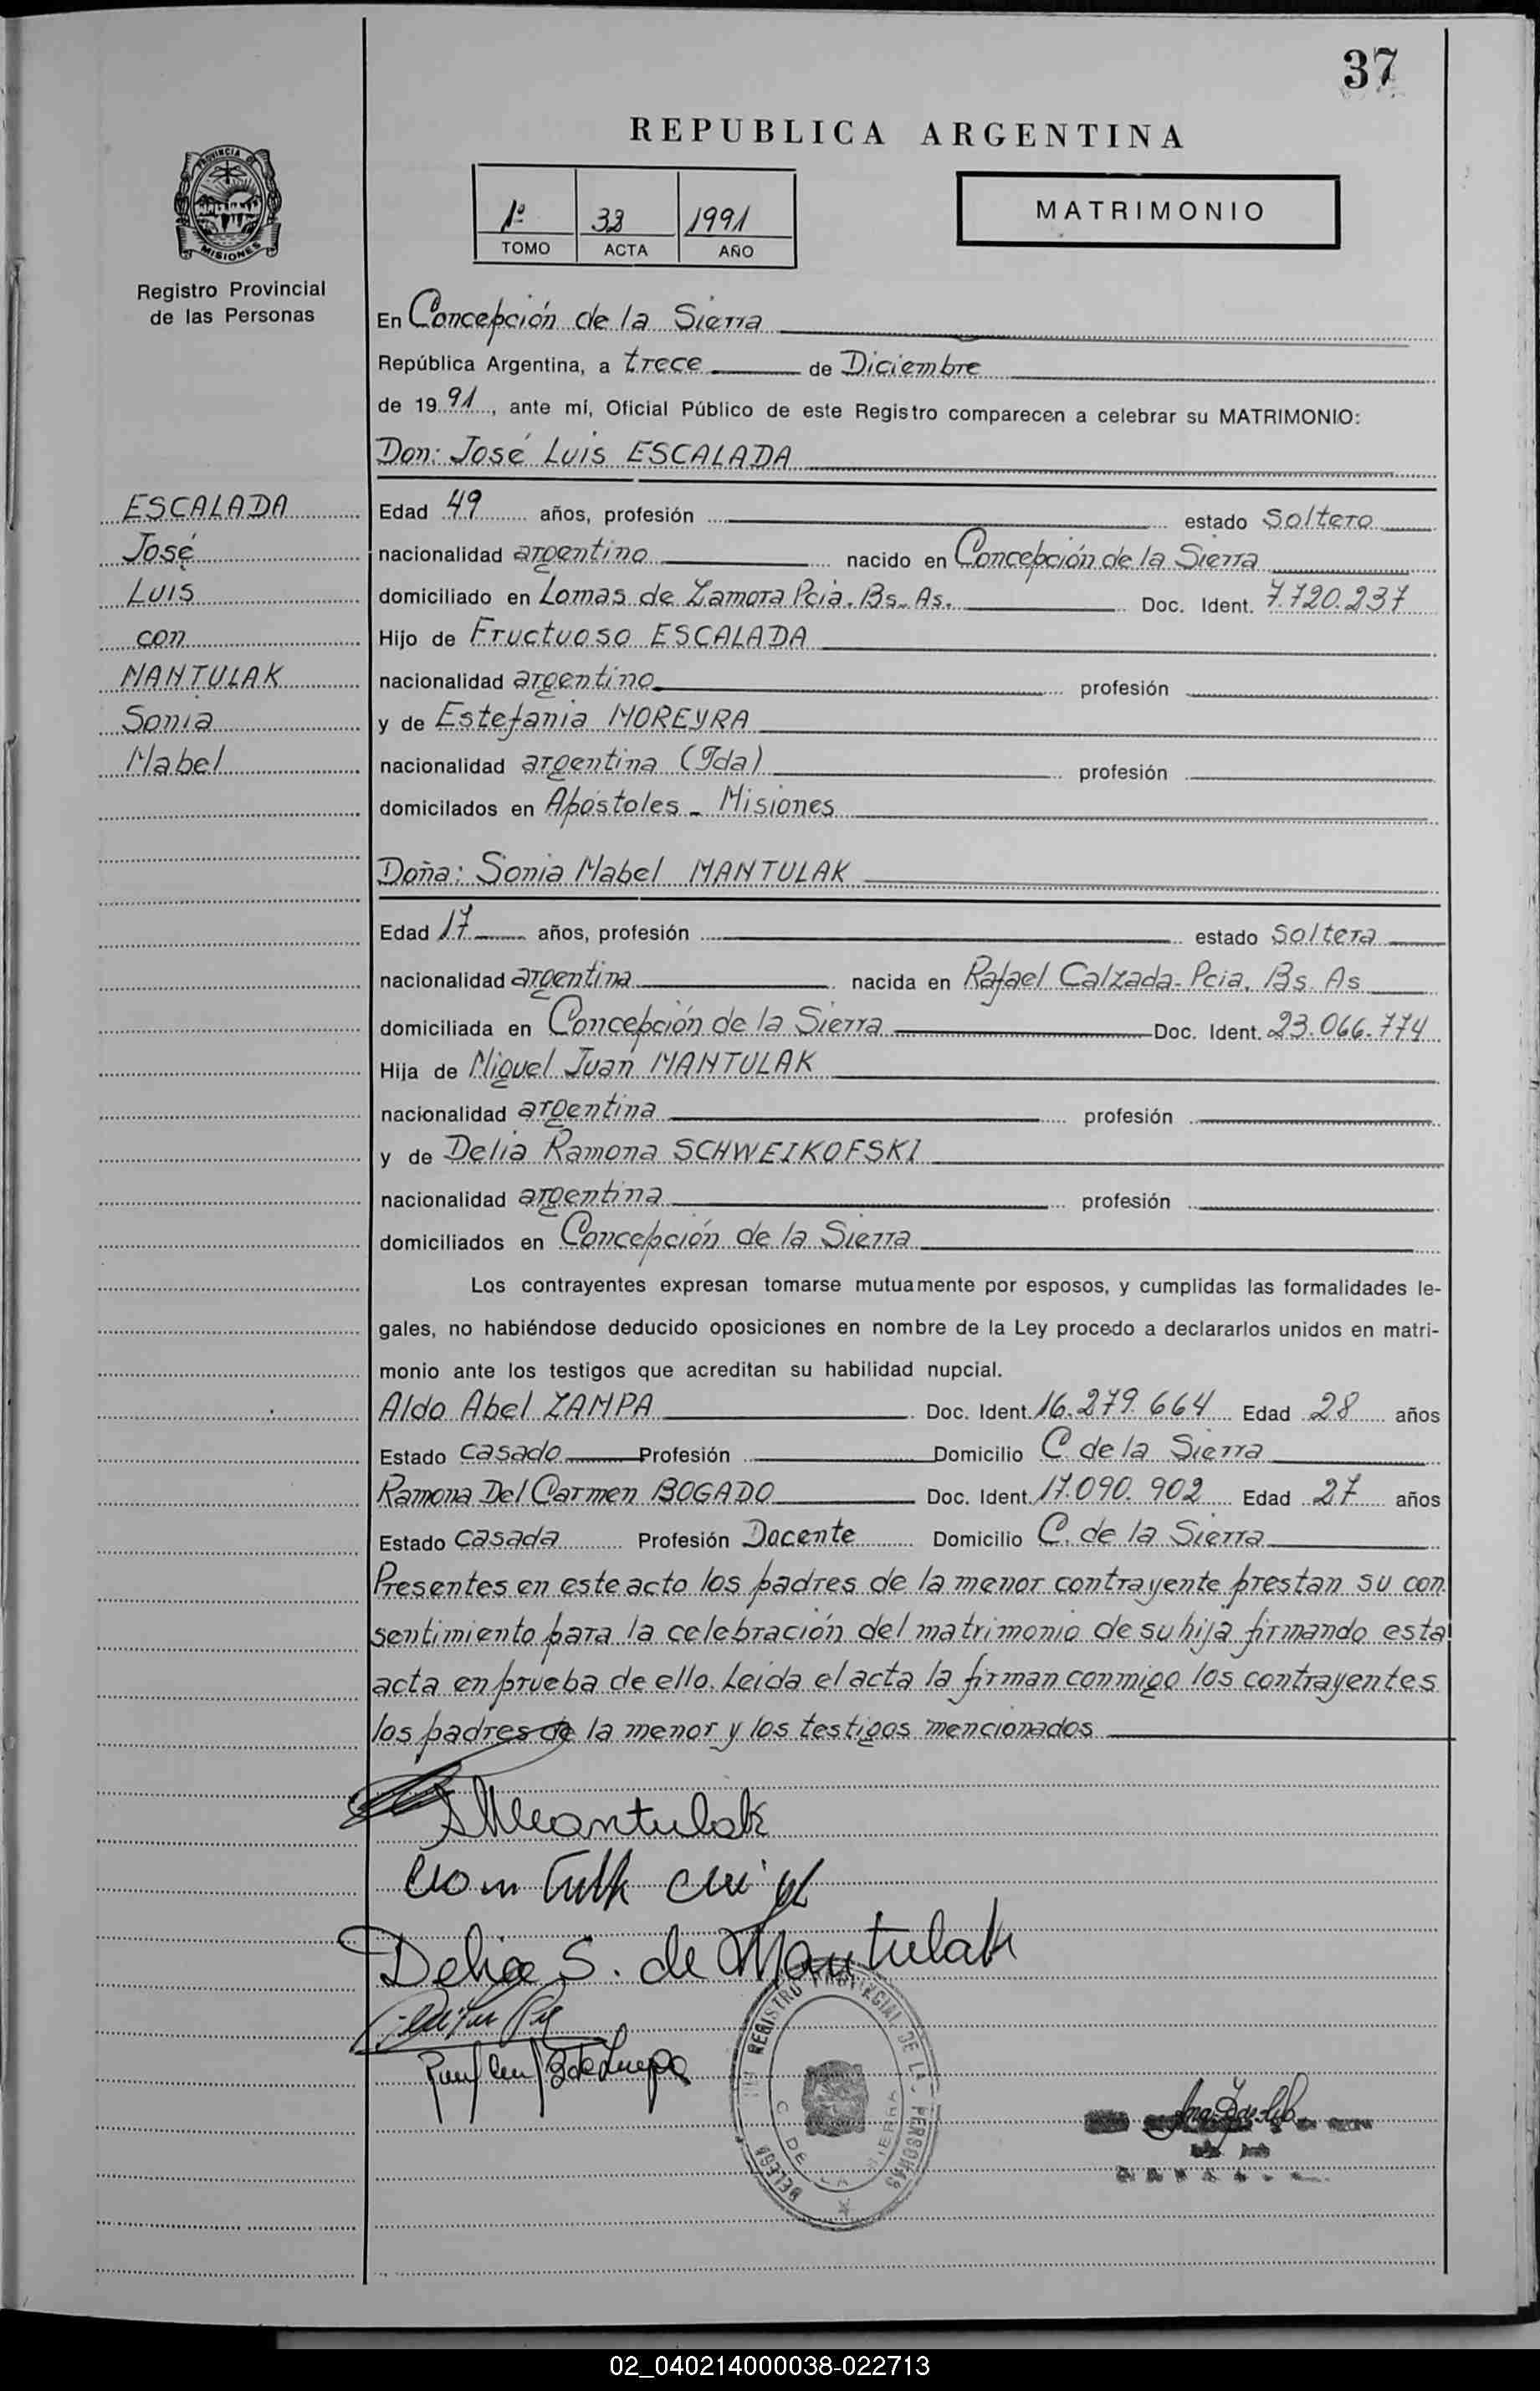 37
REPUBLICA ARGENTINA
PROVINCIA DE
MISIONES
Registro Provincial
de las Personas
1º 33 1991
TOMO ACTA AÑO
MATRIMONIO
En Concepción de la Sierra
República Argentina, a trece de Diciembre
de 1991, ante mí, Oficial Público de este Registro comparecen a celebrar su MATRIMONIO:
Don: José Luis ESCALADA
ESCALADA
José
Luis
con
MANTULAK
Sonia
Mabel
Edad 49 años, profesión estado Soltero
nacionalidad argentino nacido en Concepción de la Sierra
domiciliado en Lomas de Zamora Pcia. Bs. As. Doc. Ident. 7.720.237
Hijo de Fructuoso ESCALADA
nacionalidad argentino profesión
y de Estefania MOREYRA
nacionalidad argentina (Fda) profesión
domicilados en Apóstoles - Misiones
Doña: Sonia Mabel MANTULAK
Edad 17 años, profesión estado Soltera
nacionalidad argentina nacida en Rafael Calzada- Pcia. Bs. As
domiciliada en Concepción de la Sierra Doc. Ident. 23.066.774
Hija de Miguel Juan MANTULAK
nacionalidad argentina profesión
y de Delia Ramona SCHWEIKOFSKI
nacionalidad argentina profesión
domiciliados en Concepción de la Sierra
Los contrayentes expresan tomarse mutuamente por esposos, y cumplidas las formalidades le-
gales, no habiéndose deducido oposiciones en nombre de la Ley procedo a declararlos unidos en matri-
monio ante los testigos que acreditan su habilidad nupcial.
Aldo Abel ZAMPA Doc. Ident. 16.279.664 Edad 28 años
Estado casado Profesión Domicilio C de la Sierra
Ramona Del Carmen BOGADO Doc. Ident. 17.090.902 Edad 27 años
Estado casada Profesión Docente Domicilio C. de la Sierra
Presentes en este acto los padres de la menor contrayente prestan su con
sentimiento para la celebración del matrimonio de su hija firmando esta
acta en prueba de ello. Leida el acta la firman conmigo los contrayentes
los padres de la menor y los testigos mencionados
SMMantulak
Delia S. de Mantulak
REGISTRO PROVINCIAL DE LAS PERSONAS
C. DE LA SIERRA
02_040214000038-022713